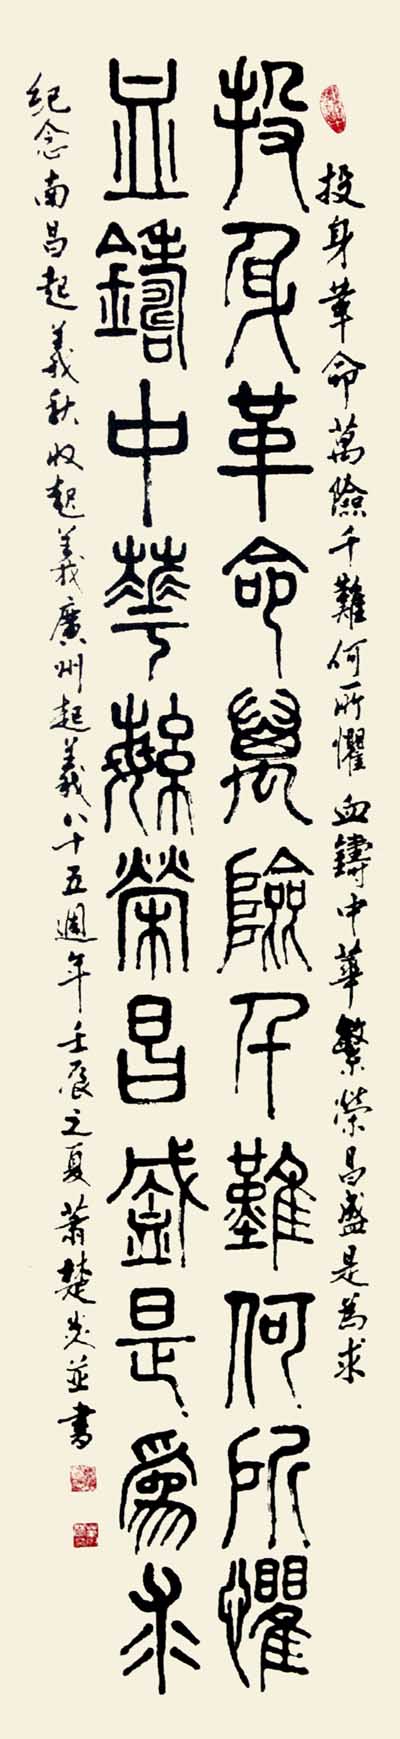 投身革命萬險千難何所懼血鑄中華繁榮昌盛是為求
投身革命萬險千難何所懼
血鑄中華緐榮昌盛是為求
紀念南昌起義秋收起義廣州起義八十五週年壬辰之夏蕭楚炎並書